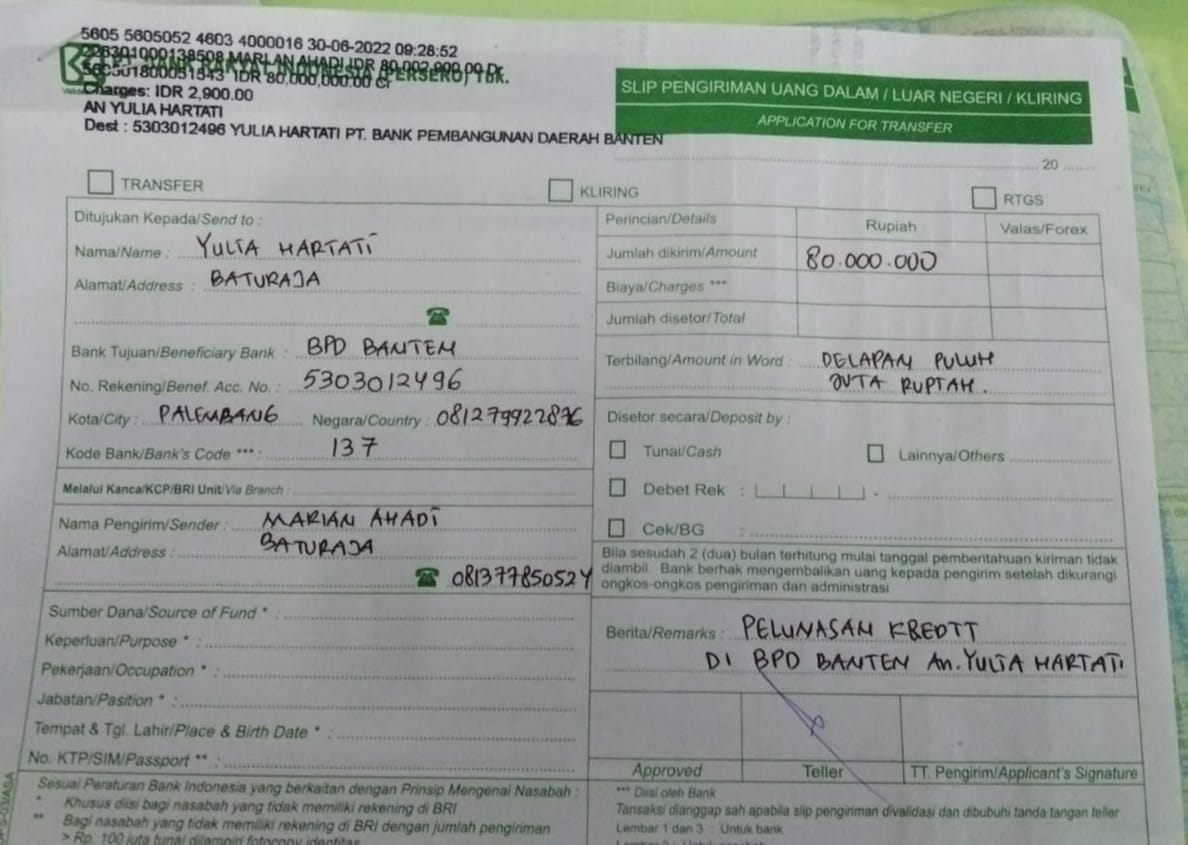 5605 5605052 4603 4000016 30-06-2022 09:28:52
226301000138508 MARLAN AHADI IDR 80,002,900.00 Dr
BANK RAKYAT INDONESIA (PERSERO) Tbk.
560501800051543 IDR 80,000,000.00 Cr
Charges: IDR 2,900.00
AN YULIA HARTATI
Dest : 5303012496 YULIA HARTATI PT. BANK PEMBANGUNAN DAERAH BANTEN
SLIP PENGIRIMAN UANG DALAM / LUAR NEGERI / KLIRING
APPLICATION FOR TRANSFER
20
TRANSFER
KLIRING
RTGS
Ditujukan Kepada/Send to :
Nama/Name : YULIA HARTATI
Alamat/Address : BATURAJA
Bank Tujuan/Beneficiary Bank : BPD BANTEN
No. Rekening/Benef. Acc. No. : 5303012496
Kota/City : PALEMBANG Negara/Country : 081279922876
Kode Bank/Bank's Code *** : 137
Melalui Kanca/KCP/BRI Unit/Via Branch :
Nama Pengirim/Sender : MARIAN AHADI
Alamat/Address : BATURAJA
081377850524
Sumber Dana/Source of Fund * :
Keperluan/Purpose * :
Pekerjaan/Occupation * :
Jabatan/Pasition * :
Tempat & Tgl. Lahir/Place & Birth Date * :
No. KTP/SIM/Passport ** :
Sesuai Peraturan Bank Indonesia yang berkaitan dengan Prinsip Mengenai Nasabah :
* Khusus diisi bagi nasabah yang tidak memiliki rekening di BRI
** Bagi nasabah yang tidak memiliki rekening di BRI dengan jumlah pengiriman
> Rp. 100 juta tunai dilampiri fotocopy identitas
Perincian/Details Rupiah Valas/Forex
Jumlah dikirim/Amount 80.000.000
Biaya/Charges ***
Jumlah disetor/Total
Terbilang/Amount in Word : DELAPAN PULUH
JUTA RUPIAH.
Disetor secara/Deposit by :
Tunai/Cash
Lainnya/Others
Debet Rek : -
Cek/BG :
Bila sesudah 2 (dua) bulan terhitung mulai tanggal pemberitahuan kiriman tidak
diambil. Bank berhak mengembalikan uang kepada pengirim setelah dikurangi
ongkos-ongkos pengiriman dan administrasi
Berita/Remarks : PELUNASAN KREDIT
DI BPD BANTEN An. YULIA HARTATI
Approved
Teller
TT. Pengirim/Applicant's Signature
*** Diisi oleh Bank
Tansaksi dianggap sah apabila slip pengiriman divalidasi dan dibubuhi tanda tangan teller
Lembar 1 dan 3 : Untuk bank